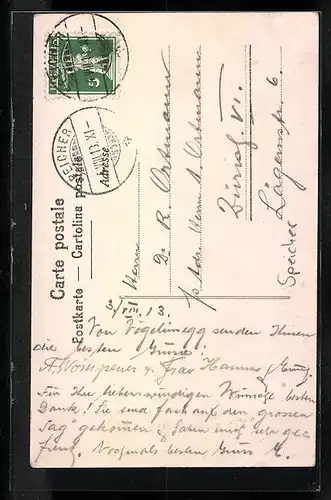 HELVETIA
5
SPEICHER
VIII.13.XI-
Carte postale
Postkarte — Cartolina postale
Adresse
Herrn
Dr. R. Ortmann
p Adr. Herrn A. Ortmann
Zürich VI.
Lägernstr. 6.
Speicher
6/VIII 13.
Von Vögelinsegg senden Ihnen
die besten Grüsse!
Frau Hanna
Für Ihre liebenswürdigen Wünsche besten
Dank! Sie sind fast auf den "grossen
Tag" gekommen & haben mich sehr
freut. Nochmals besten Gruss